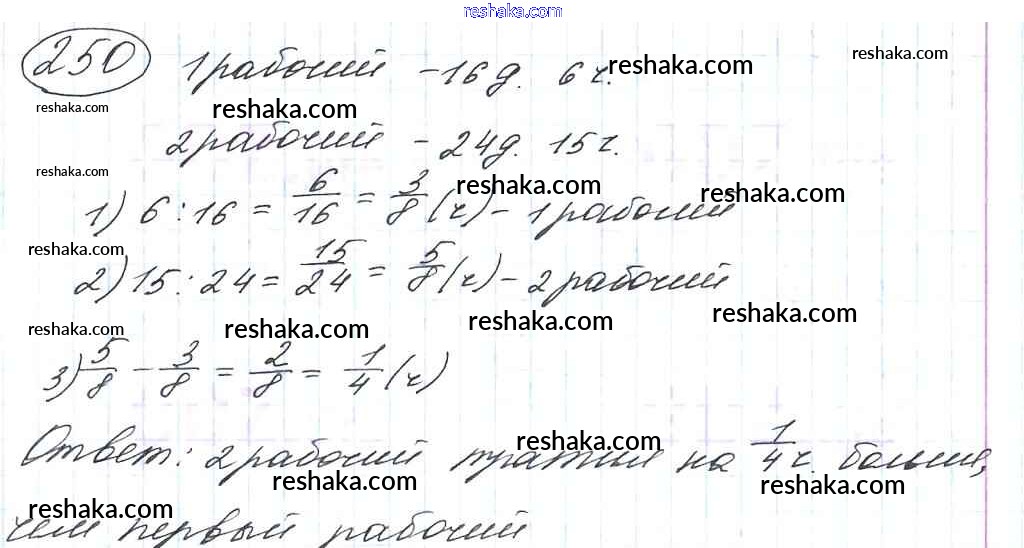 reshaka.com
250 1 рабочий - 16 д. 6 ч.
reshaka.com
reshaka.com
reshaka.com
reshaka.com
2 рабочий - 24 д. 15 ч.
reshaka.com
reshaka.com
reshaka.com
1) 6 : 16 = 6/16 = 3/8 (ч) - 1 рабочий
reshaka.com
2) 15 : 24 = 15/24 = 5/8 (ч) - 2 рабочий
reshaka.com
reshaka.com
reshaka.com
reshaka.com
3) 5/8 - 3/8 = 2/8 = 1/4 (ч)
reshaka.com
Ответ: 2 рабочий тратил на 1/4 ч. больше,
reshaka.com
reshaka.com
reshaka.com
чем первый рабочий